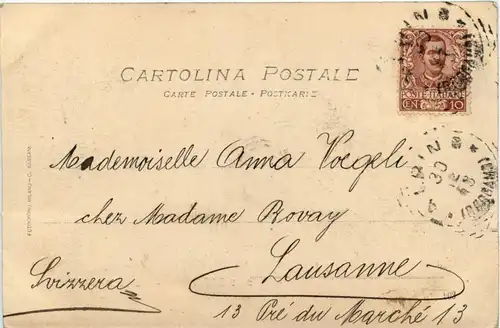 CARTOLINA POSTALE
CARTE POSTALE - POSTKARTE
POSTE ITALIANE
CEN 10
Mademoiselle Anna Voegeli
chez Madame Bovay
Lausanne
Svizzera
13 Pré du Marché 13